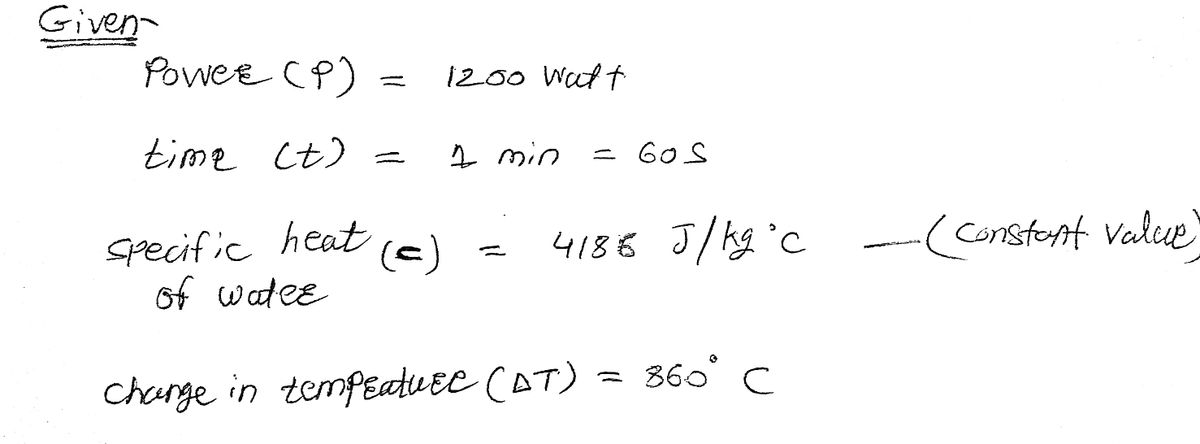 Given-
Power (P) = 1200 Watt
time (t) = 1 min = 60 S
specific heat (c) = 4186 J/kg °C — (constant value)
of water
change in tempeature (ΔT) = 360° C